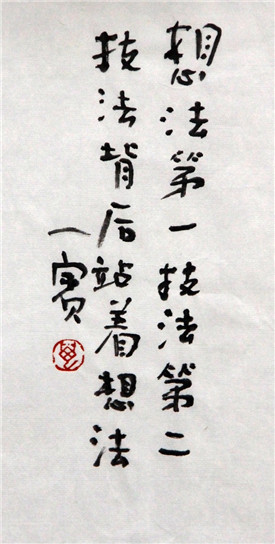 想法第一技法第二
技法背后站着想法
一宾